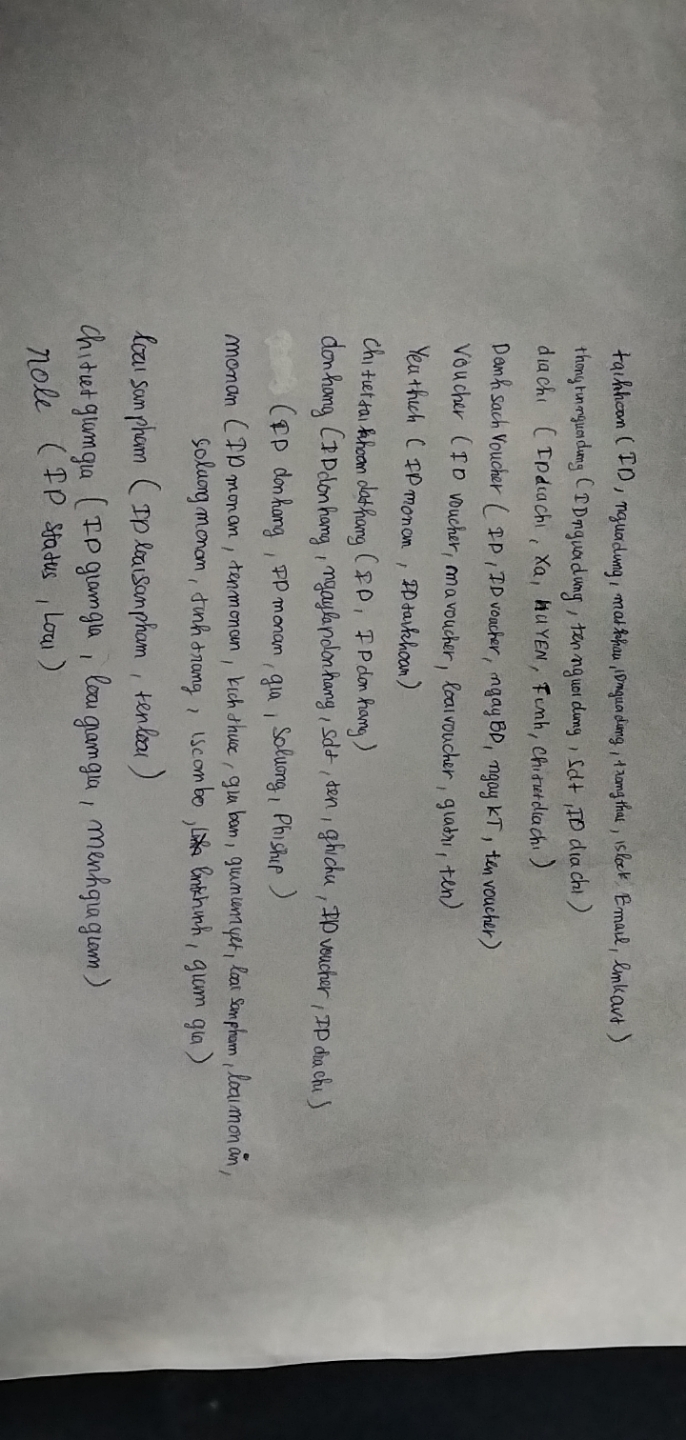 taikhoan ( ID, nguoidung, matkhau, IDnguoidung, trangthai, islock, Email, linkavt )
thongtinnguoidung ( IDnguoidung, tennguoidung, sdt, ID diachi )
diachi ( IDdiachi, Xa, HUYEN, Tinh, chitietdiachi )
Danh sach voucher ( ID, ID voucher, ngayBD, ngay KT, ten voucher )
Voucher ( ID voucher, ma voucher, loai voucher, giatri, ten )
Yeu thich ( ID monan, ID taikhoan )
chi tiet tai khoan dat hang ( ID, ID don hang )
donhang ( ID donhang, ngaylapdonhang, sdt, ten, ghichu, ID voucher, ID dia chi )
( ID don hang, ID monan, gia, soluong, Phi ship )
monan ( ID monan, tenmonan, kich thuoc, gia ban, gia niem yet, loai sanpham, loai mon ăn,
soluong monan, tinh trang, iscombo, linkhinh, giam gia )
loai sanpham ( ID loai sanpham, ten loai )
chi tiet giam gia ( ID giamgia, loai giamgia, menh gia giam )
role ( ID status, Loai )